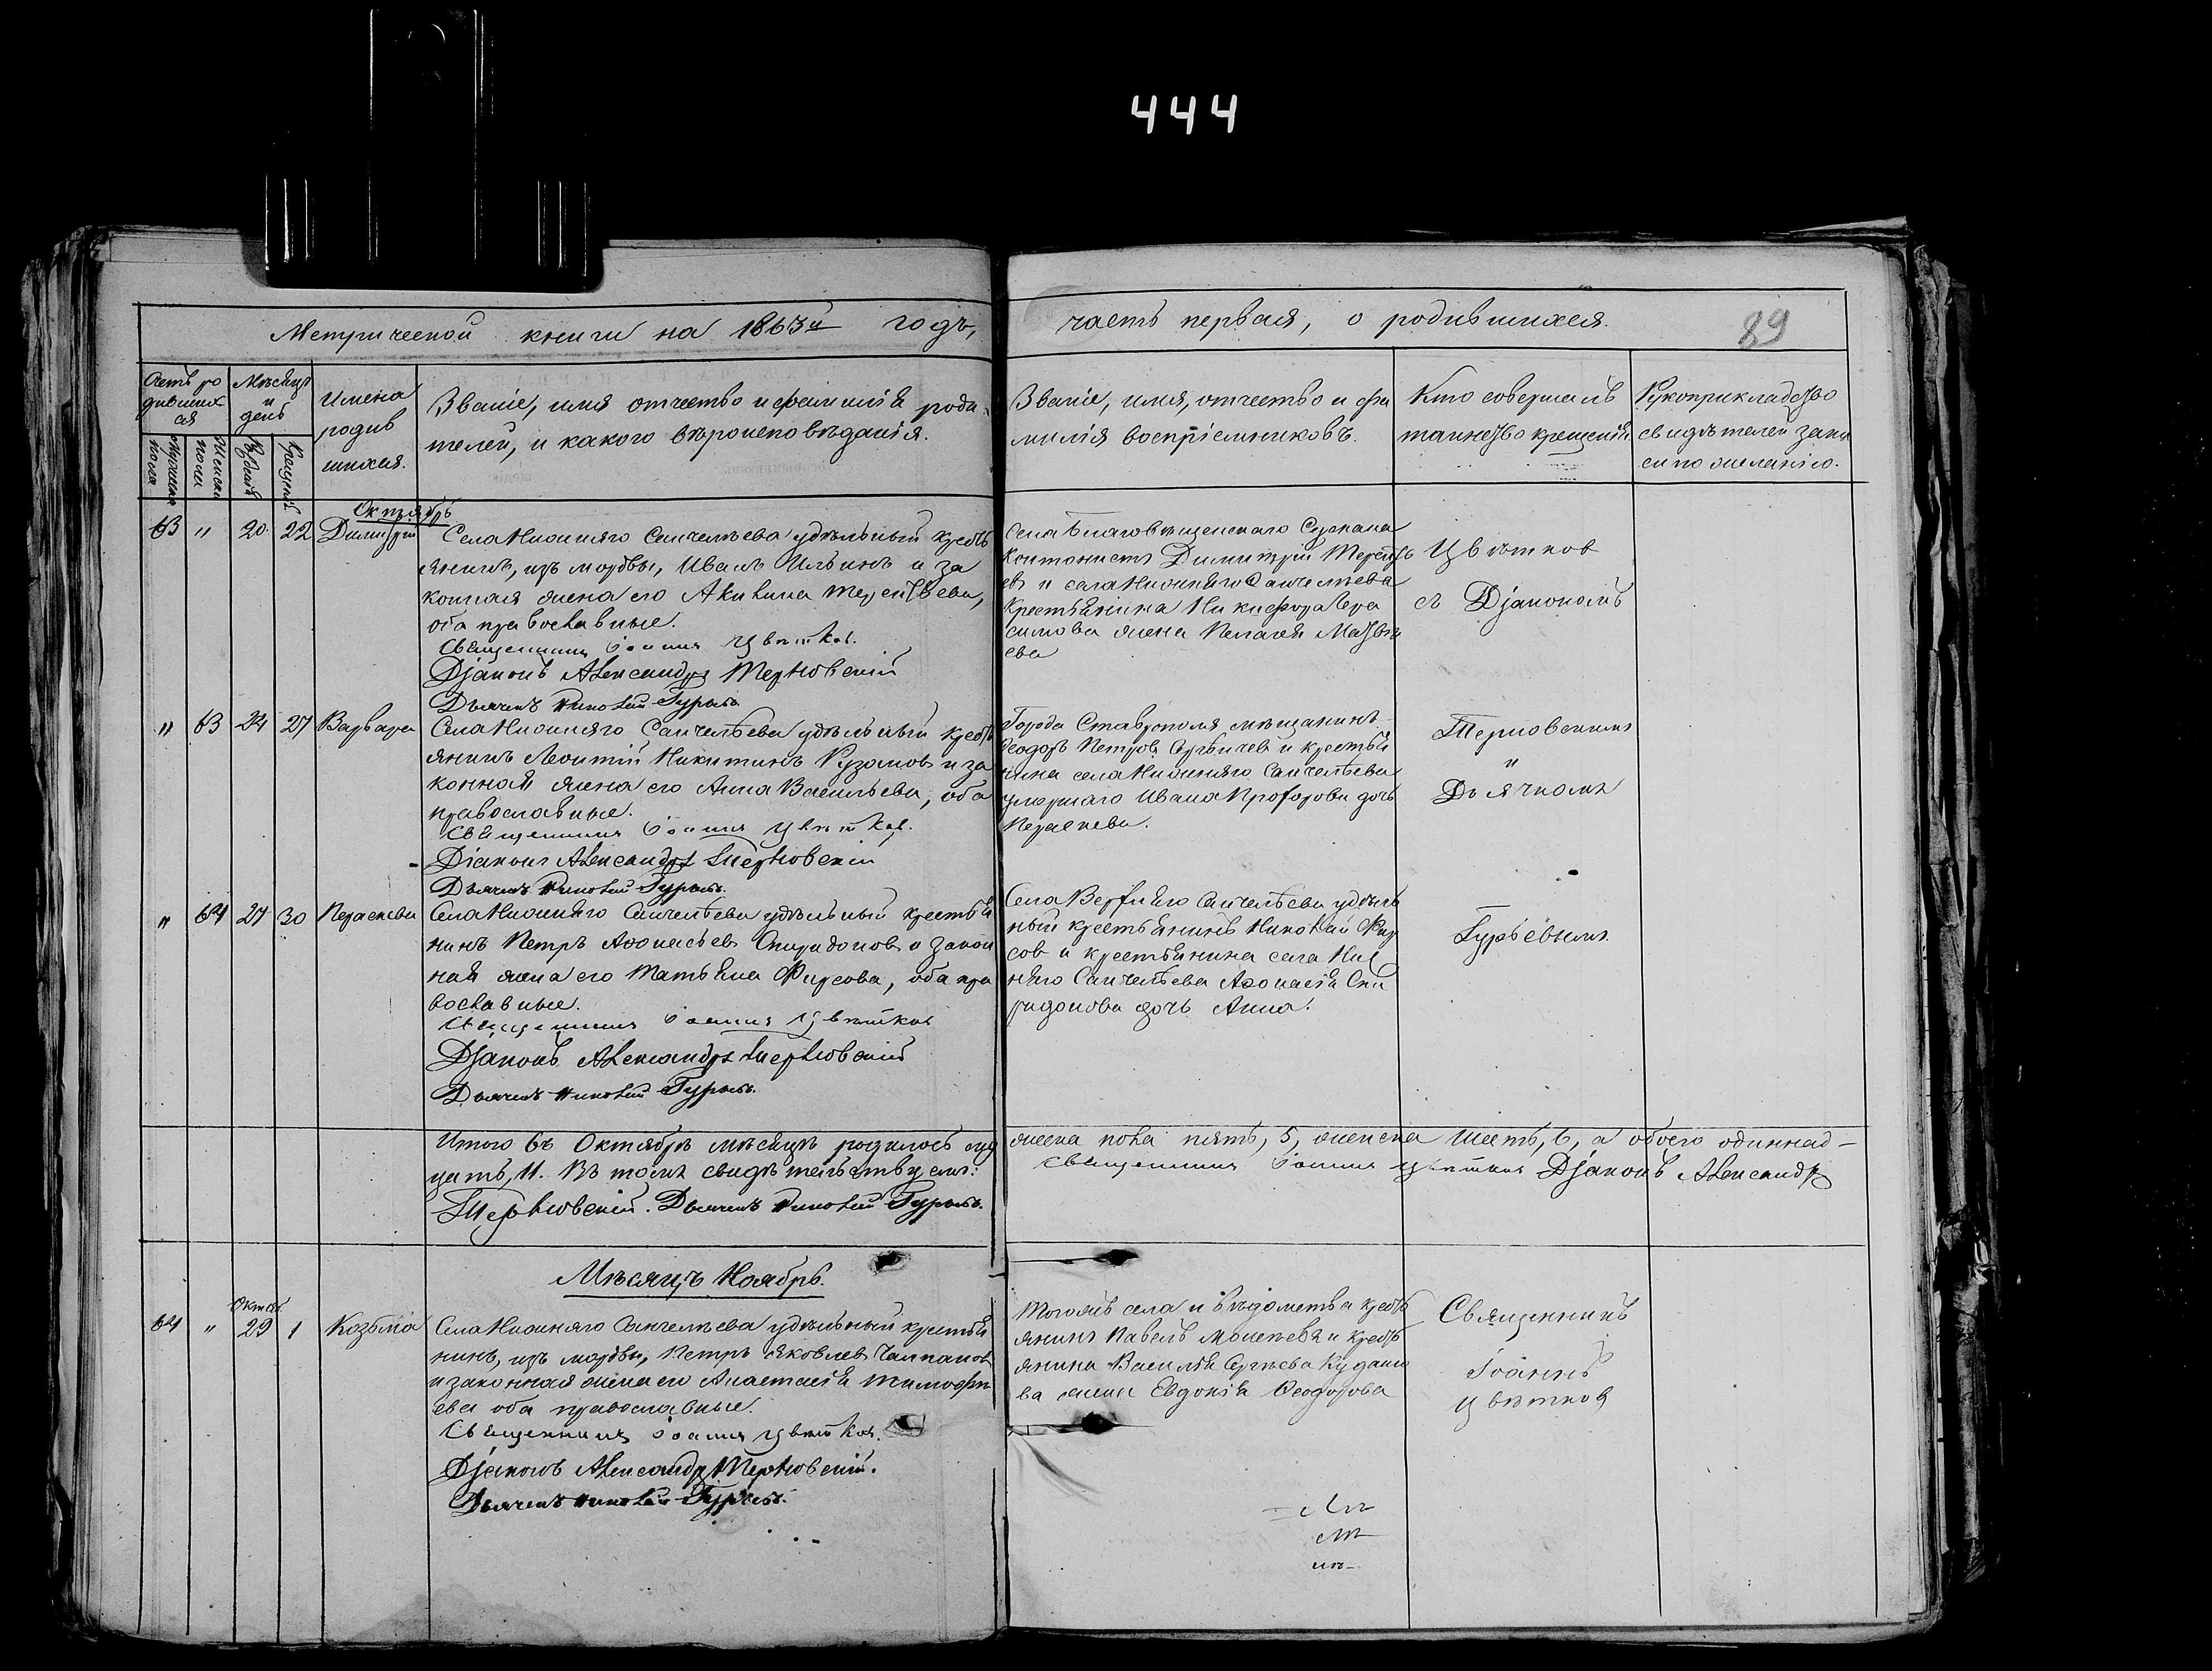 444
Метрической книги на 1863й годъ,
часть первая, о родившихся.
89
Счетъ ро
дивших
ся
Мѣсяцъ
и
день
Имена
родив
шихся.
Званіе, имя отчество и фамилія роди-
телей, и какого вѣроисповѣданія.
Званіе, имя, отчество и фа
милія воспріемниковъ.
Кто совершалъ
таинство крещенія.
Рукоприкладство
свидѣтелей запи
си по желанію.
Октябрь
63 " 20 22 Димитрій
Села Нижняго Санчелѣева удѣльный кресть
янинъ, изъ мордвы, Иванъ Ильинъ и за
конная жена его Акилина Терентьева,
оба православные.
Священникъ Іоаннъ Цвѣтковъ.
Діаконъ Александръ Терновскій
Дьячекъ Николай Гурьевъ
Села Благовѣщенскаго Сускана
Кантонистъ Димитрій Терентьь
евъ и села Нижняго Санчелѣева
Крестьянина Никифора Гера
симова жена Пелагея Матвѣ
ева
Цвѣтков
съ Діакономъ
" 63 24 27 Варвара
Села Нижняго Санчелѣева удѣльный кресть
янинъ Леонтій Никитинъ Кузамовъ и за
конная жена его Анна Васильева, оба
православные.
Священникъ Іоаннъ Цвѣтков.
Діаконъ Александръ Терновскій
Дьячекъ Николай Гурьевъ.
Города Ставрополя мѣщанинъ
Ѳеодоръ Петровъ и крестья
нина села Нижняго Санчелѣева
умершаго Ивана Прохорова дочь
Параскева.
Терновскимъ
"
Дьячкомъ
" 64 27 30 Параскева
Села Нижняго Санчелѣева удѣльный крестья
нинъ Петръ Аѳонасьевъ Спиридонов и закон
ная жена его Татьяна Фирсова, оба пра
вославные.
Священникъ Іоаннъ Цвѣтков
Діаконъ Александръ Терновскій
Дьячекъ Николай Гурьевъ.
Села Верхняго Санчелѣева удѣль
ный крестьянинъ Николай Фир
сов и крестьянина села Ниж
няго Санчелѣева Аѳонасія Спи
ридонова дочь Анна.
Гурьевымъ.
Итого въ Октябрѣ мѣсяцѣ родилось муж
жеска пола пять, 5, женска шесть, 6, а обоего одиннад-
цать, 11. Въ томъ свидѣтельствуемъ:
Священникъ Іоаннъ Цвѣтковъ Діаконъ Александръ
Терновскій. Дьячекъ Николай Гурьевъ.
Мѣсяцъ Ноябрь.
Октяб.
64 " 29 1 Козьма
Села Нижняго Санчелѣева удѣльный крестья
нинъ, изъ мордвы, Петръ Яковлев Чалпанов
и законная жена его Анастасія Тимофѣ
ева оба православные.
Священникъ Іоаннъ Цвѣтков.
Діаконъ Александръ Терновскій.
Дьячекъ Николай Гурьевъ.
Тогожъ села и вѣдомства кресть
янинъ Павелъ Моисеевъ и кресть
янина Василія Сергѣева Кудаше
ва жена Евдокія Ѳеодорова
Священникъ
Іоаннъ
Цвѣтков